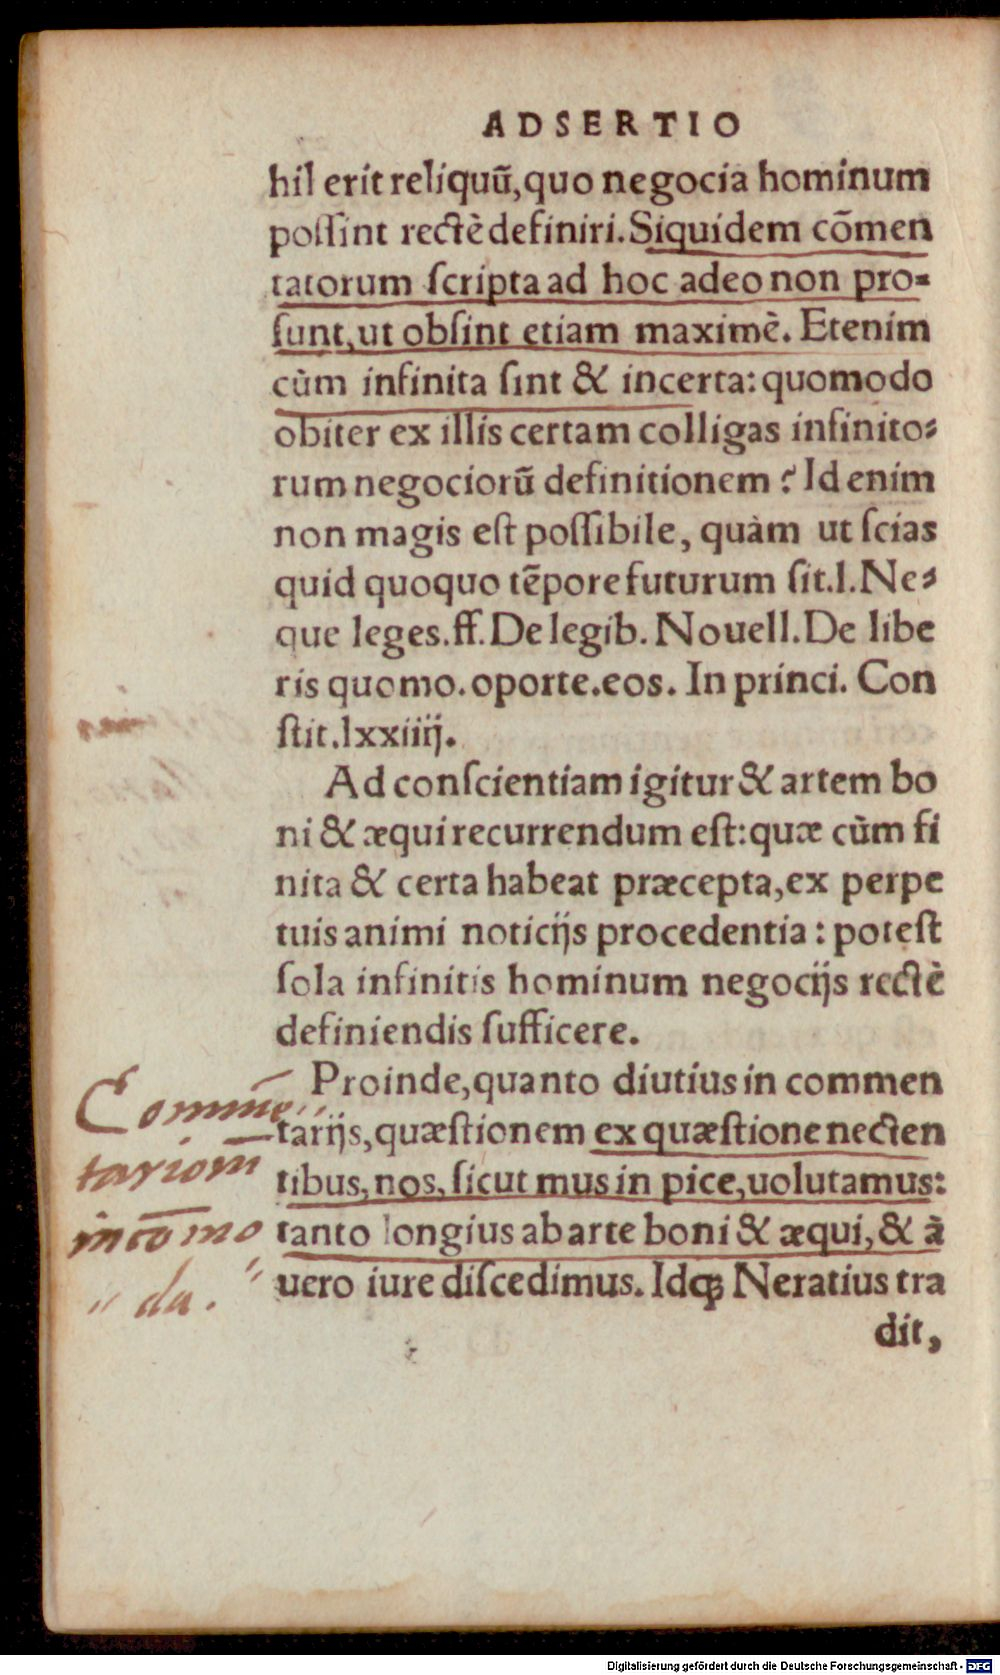 ADSERTIO
hil erit reliquũ, quo negocia hominum
poſſint rectè definiri. Siquidem cõmen
tatorum ſcripta ad hoc adeo non pro-
ſunt, ut obſint etiam maximè. Etenim
cùm infinita ſint & incerta: quomodo
obiter ex illis certam colligas infinito-
rum negociorũ definitionem? Id enim
non magis eſt poſſibile, quàm ut ſcias
quid quoquo tẽpore futurum ſit. l. Ne-
que leges. ff. De legib. Nouell. De libe
ris quomo. oporte. eos. In princi. Con
ſtit. lxxiiij.
Ad conſcientiam igitur & artem bo
ni & æqui recurrendum eſt: quæ cùm fi
nita & certa habeat præcepta, ex perpe
tuis animi noticijs procedentia: poteſt
ſola infinitis hominum negocijs rectè
definiendis ſufficere.
Proinde, quanto diutius in commen
tarijs, quæſtionem ex quæſtione necten
tibus, nos, ſicut mus in pice, uolutamus:
tanto longius ab arte boni & æqui, & à
uero iure diſcedimus. Idqꝫ Neratius tra
dit,
Comme̅"
tariom̅
inco̅mo"
" da.
Digitalisierung gefördert durch die Deutsche Forschungsgemeinschaft - DFG